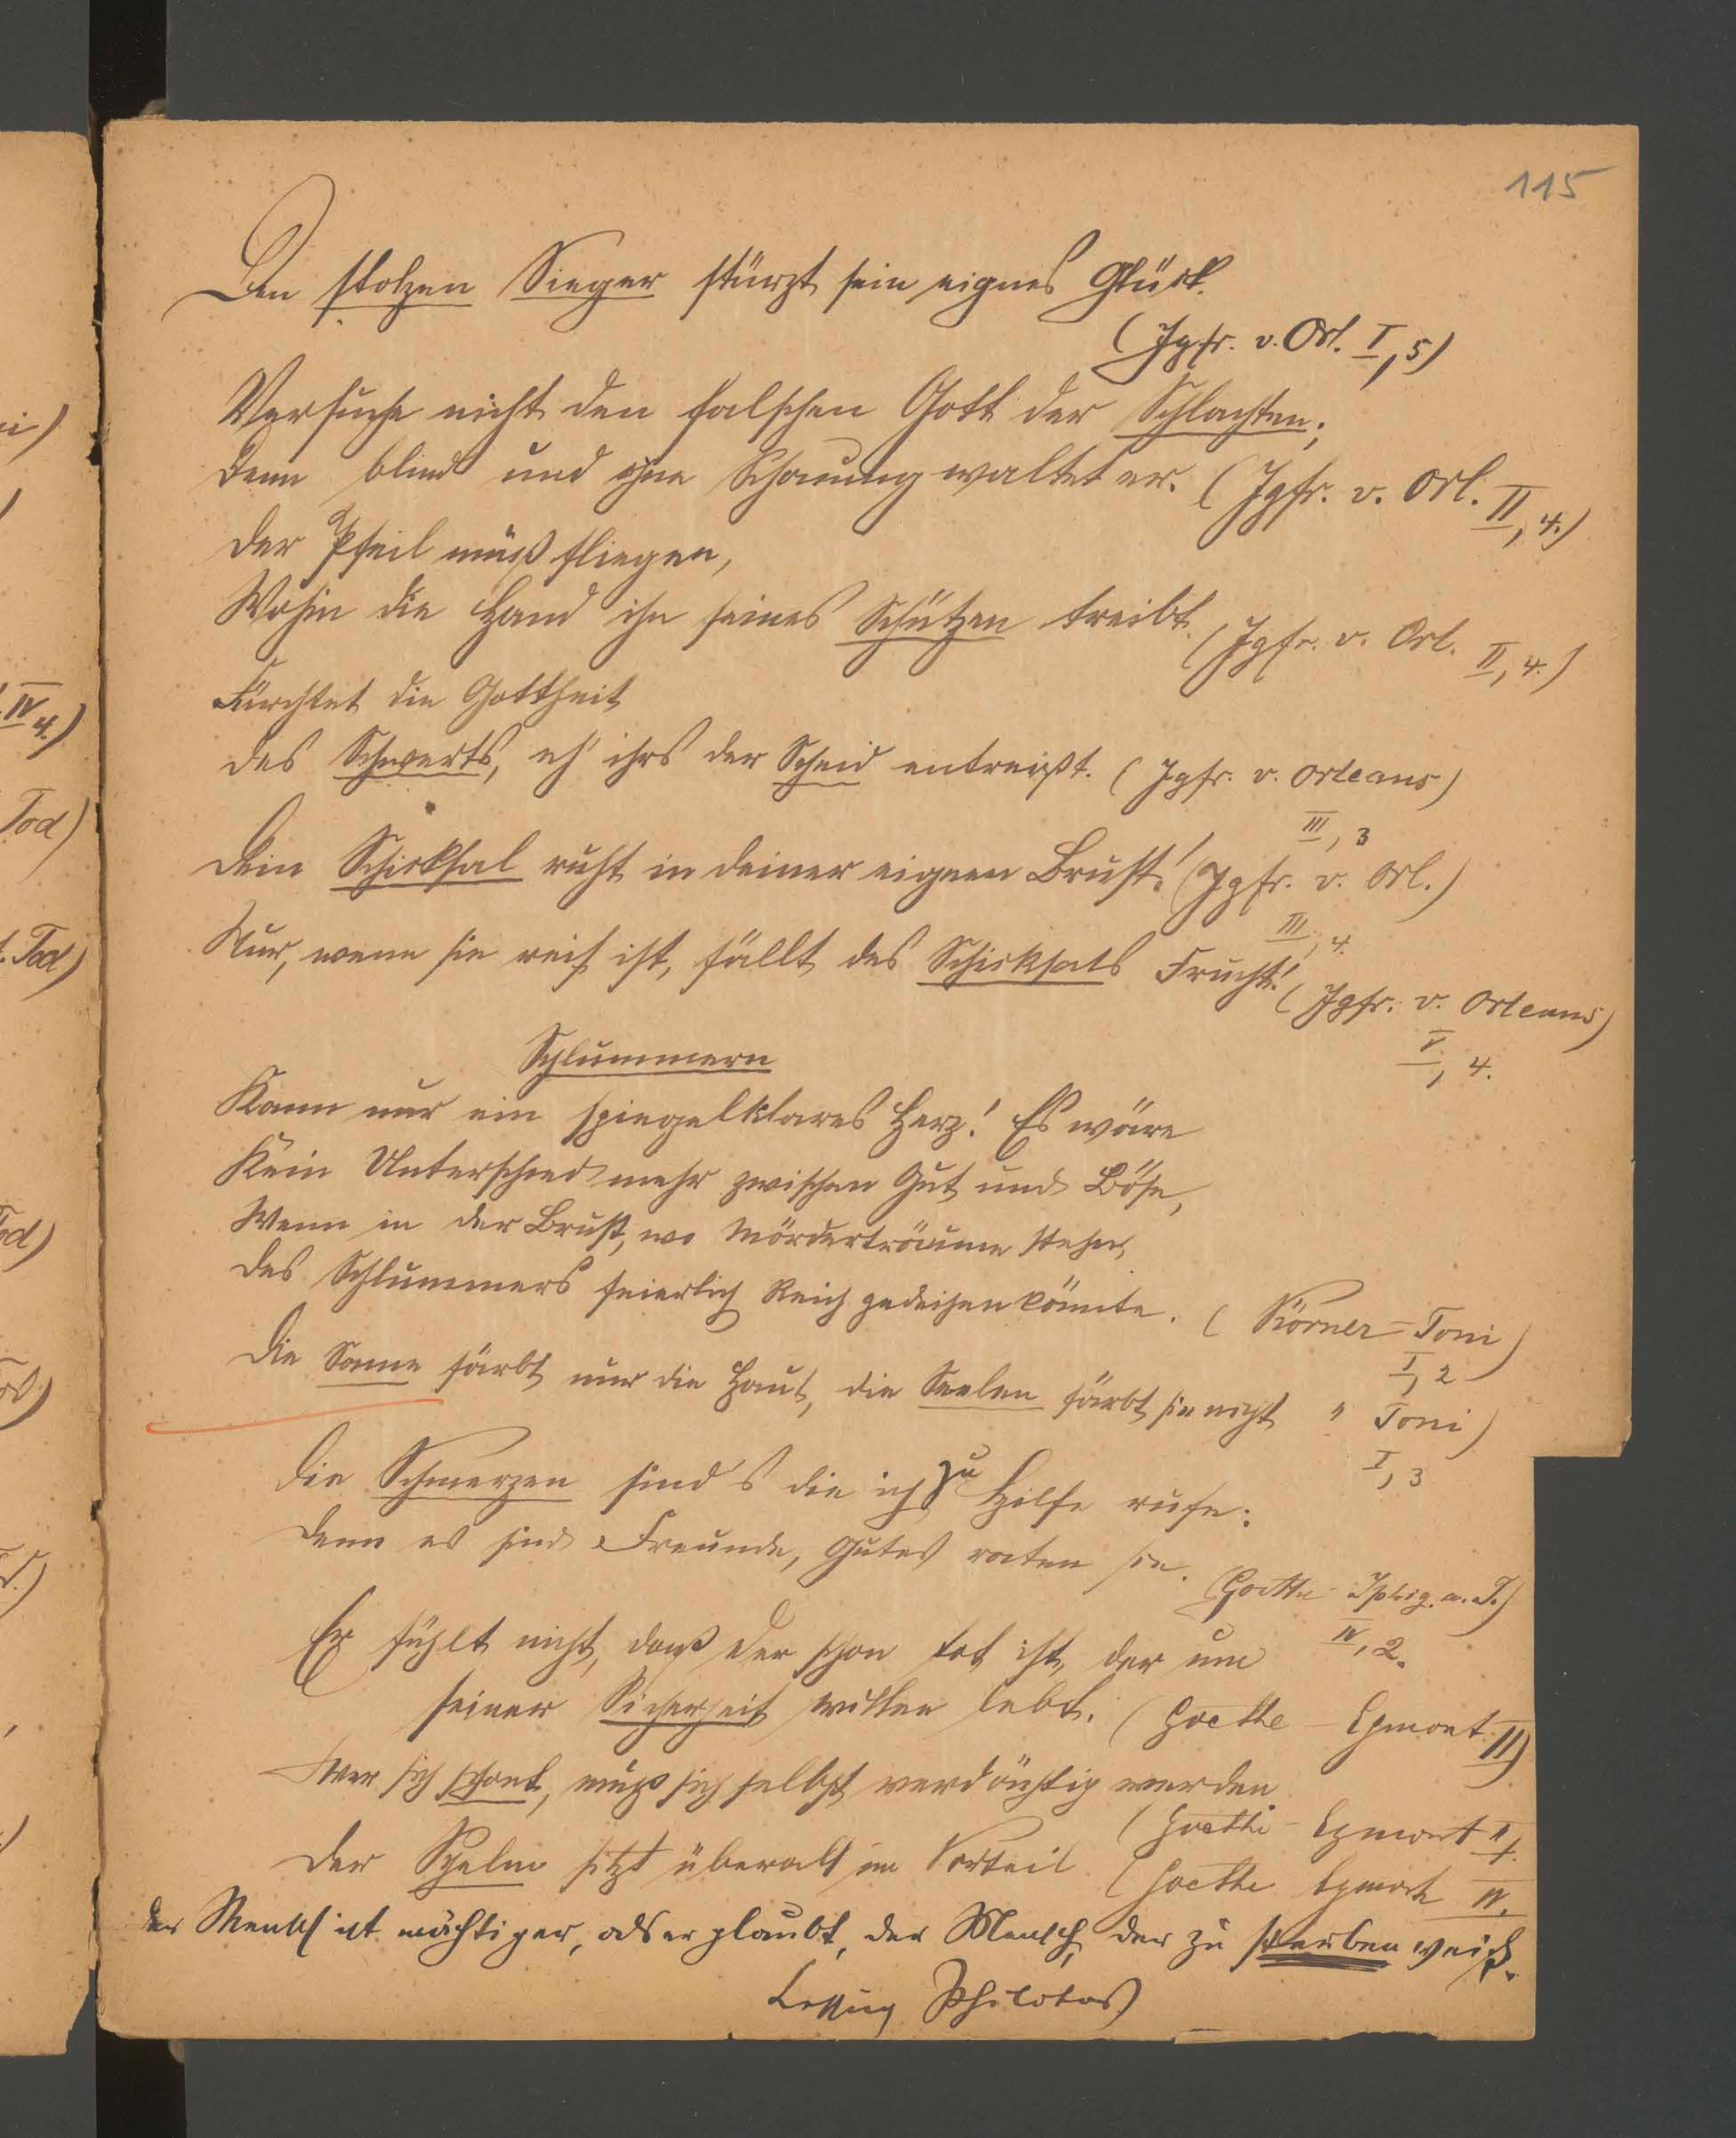 115
Den stolzen Sieger stürzt sein eignes Glück.
(Jgfr. v. Orl. I, 5)
Versuche nicht den falschen Gott der Schlachten;
Denn blind und ohne Schonung waltet er. (Jgfr. v. Orl. II, 4.)
Der Pfeil muß fliegen,
Wohin die Hand ihn seines Schützen treibt. (Jgfr. v. Orl. II, 4.)
Fürchtet die Gottheit
des Schwerts, eh' ihrs der Scheid entreißt. (Jgfr. v. Orleans)
III, 3
Dein Schicksal ruht in deiner eignen Brust! (Jgfr. v. Orl.)
III, 4.
Nur, wenn sie reif ist, fällt des Schicksals Frucht! (Jgfr. v. Orleans)
V, 4.
Schlummern
Kann nur ein spiegelklares Herz! Es wäre
Kein Unterschied mehr zwischen Gut und Böse,
Wenn in der Brust, wo Mörderträume stehen,
Des Schlummers feierlich Reich gedeihen könnte. (Körner - Toni)
I, 2
Die Sonne färbt nur die Haut, die Seelen färbt sie nicht " Toni)
I, 3
Die Schmerzen sind's die ich zu Hilfe rufe:
Denn es sind Freunde, Gutes raten sie. (Goethe Iphig. a. T.)
IV, 2.
Er fühlt nicht, daß der schon tot ist, der um
seiner Sicherheit willen lebt. (Goethe - Egmont II)
Wer sich schont, muß sich selbst verdächtig werden
(Goethe - Egmont II.
Der Schelm sitzt überall im Vorteil (Goethe Egmont IV.
der Mensch ist mächtiger, als er glaubt, der Mensch, der zu sterben weiß.
Lessing Philotas)
i)
)
IV 4.)
Tod)
. Tod)
od)